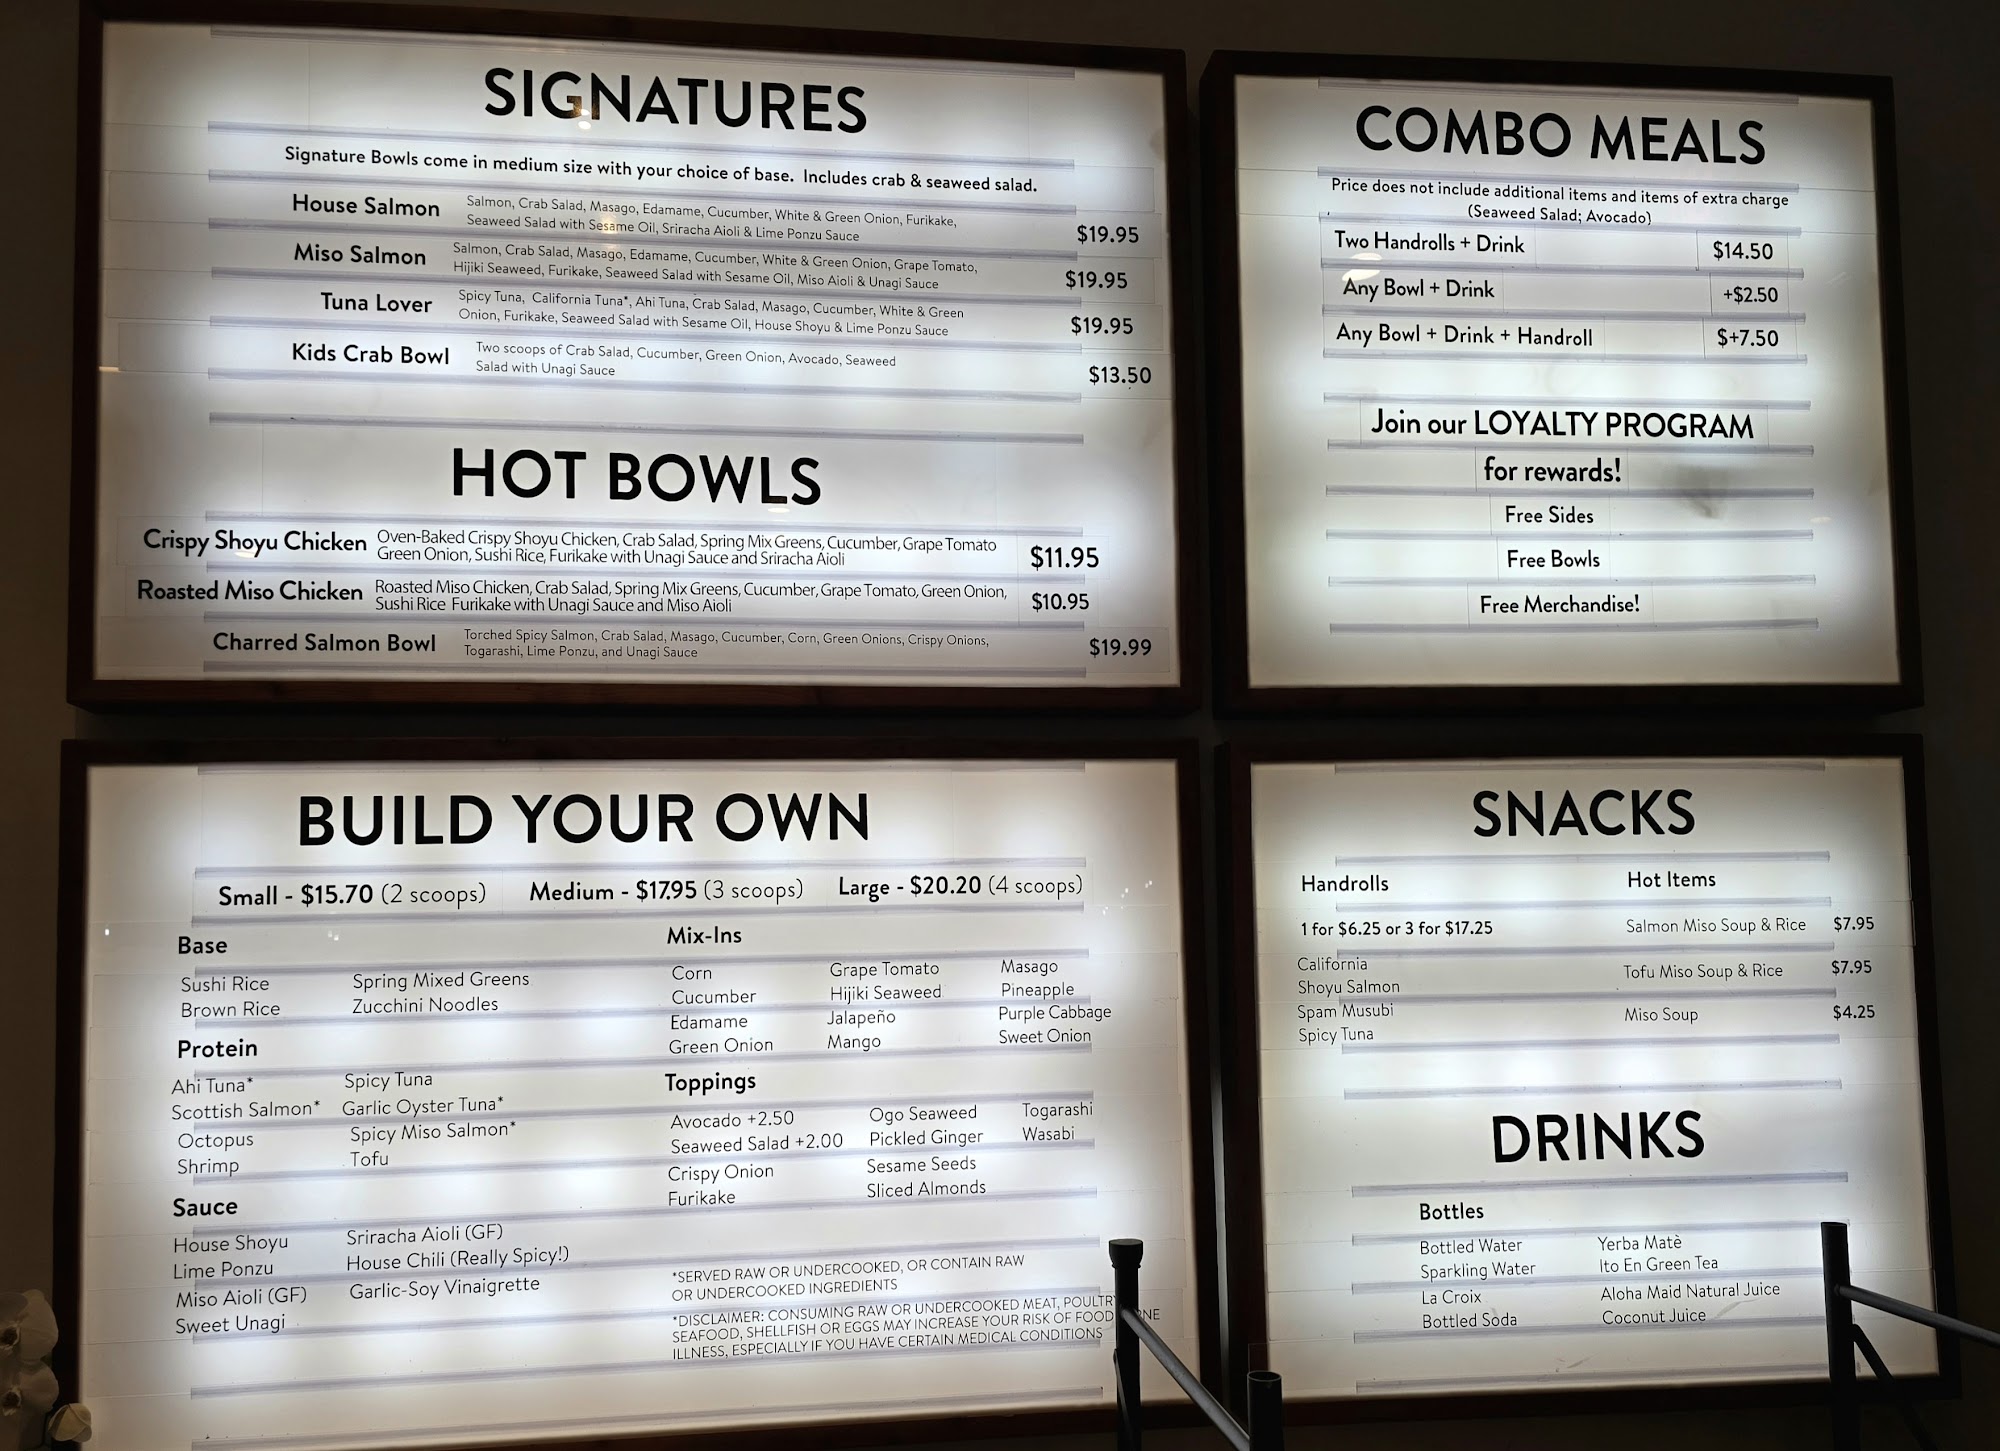 SIGNATURES
Signature Bowls come in medium size with your choice of base. Includes crab & seaweed salad.
House Salmon
Salmon, Crab Salad, Masago, Edamame, Cucumber, White & Green Onion, Furikake,
Seaweed Salad with Sesame Oil, Sriracha Aioli & Lime Ponzu Sauce
$19.95
Miso Salmon
Salmon, Crab Salad, Masago, Edamame, Cucumber, White & Green Onion, Grape Tomato,
Hijiki Seaweed, Furikake, Seaweed Salad with Sesame Oil, Miso Aioli & Unagi Sauce
$19.95
Tuna Lover
Spicy Tuna, California Tuna*, Ahi Tuna, Crab Salad, Masago, Cucumber, White & Green
Onion, Furikake, Seaweed Salad with Sesame Oil, House Shoyu & Lime Ponzu Sauce
$19.95
Kids Crab Bowl
Two scoops of Crab Salad, Cucumber, Green Onion, Avocado, Seaweed
Salad with Unagi Sauce
$13.50
HOT BOWLS
Crispy Shoyu Chicken
Oven-Baked Crispy Shoyu Chicken, Crab Salad, Spring Mix Greens, Cucumber, Grape Tomato
Green Onion, Sushi Rice, Furikake with Unagi Sauce and Sriracha Aioli
$11.95
Roasted Miso Chicken
Roasted Miso Chicken, Crab Salad, Spring Mix Greens, Cucumber, Grape Tomato, Green Onion,
Sushi Rice Furikake with Unagi Sauce and Miso Aioli
$10.95
Charred Salmon Bowl
Torched Spicy Salmon, Crab Salad, Masago, Cucumber, Corn, Green Onions, Crispy Onions,
Togarashi, Lime Ponzu, and Unagi Sauce
$19.99
COMBO MEALS
Price does not include additional items and items of extra charge
(Seaweed Salad; Avocado)
Two Handrolls + Drink $14.50
Any Bowl + Drink +$2.50
Any Bowl + Drink + Handroll $+7.50
Join our LOYALTY PROGRAM
for rewards!
Free Sides
Free Bowls
Free Merchandise!
BUILD YOUR OWN
Small - $15.70 (2 scoops) Medium - $17.95 (3 scoops) Large - $20.20 (4 scoops)
Base
Sushi Rice Spring Mixed Greens
Brown Rice Zucchini Noodles
Protein
Ahi Tuna* Spicy Tuna
Scottish Salmon* Garlic Oyster Tuna*
Octopus Spicy Miso Salmon*
Shrimp Tofu
Sauce
House Shoyu Sriracha Aioli (GF)
Lime Ponzu House Chili (Really Spicy!)
Miso Aioli (GF) Garlic-Soy Vinaigrette
Sweet Unagi
Mix-Ins
Corn Grape Tomato Masago
Cucumber Hijiki Seaweed Pineapple
Edamame Jalapeño Purple Cabbage
Green Onion Mango Sweet Onion
Toppings
Avocado +2.50 Ogo Seaweed Togarashi
Seaweed Salad +2.00 Pickled Ginger Wasabi
Crispy Onion Sesame Seeds
Furikake Sliced Almonds
*SERVED RAW OR UNDERCOOKED, OR CONTAIN RAW
OR UNDERCOOKED INGREDIENTS
*DISCLAIMER: CONSUMING RAW OR UNDERCOOKED MEAT, POULTRY
SEAFOOD, SHELLFISH OR EGGS MAY INCREASE YOUR RISK OF FOOD
ILLNESS, ESPECIALLY IF YOU HAVE CERTAIN MEDICAL CONDITIONS
SNACKS
Handrolls
1 for $6.25 or 3 for $17.25
California
Shoyu Salmon
Spam Musubi
Spicy Tuna
Hot Items
Salmon Miso Soup & Rice $7.95
Tofu Miso Soup & Rice $7.95
Miso Soup $4.25
DRINKS
Bottles
Bottled Water Yerba Matè
Sparkling Water Ito En Green Tea
La Croix Aloha Maid Natural Juice
Bottled Soda Coconut Juice